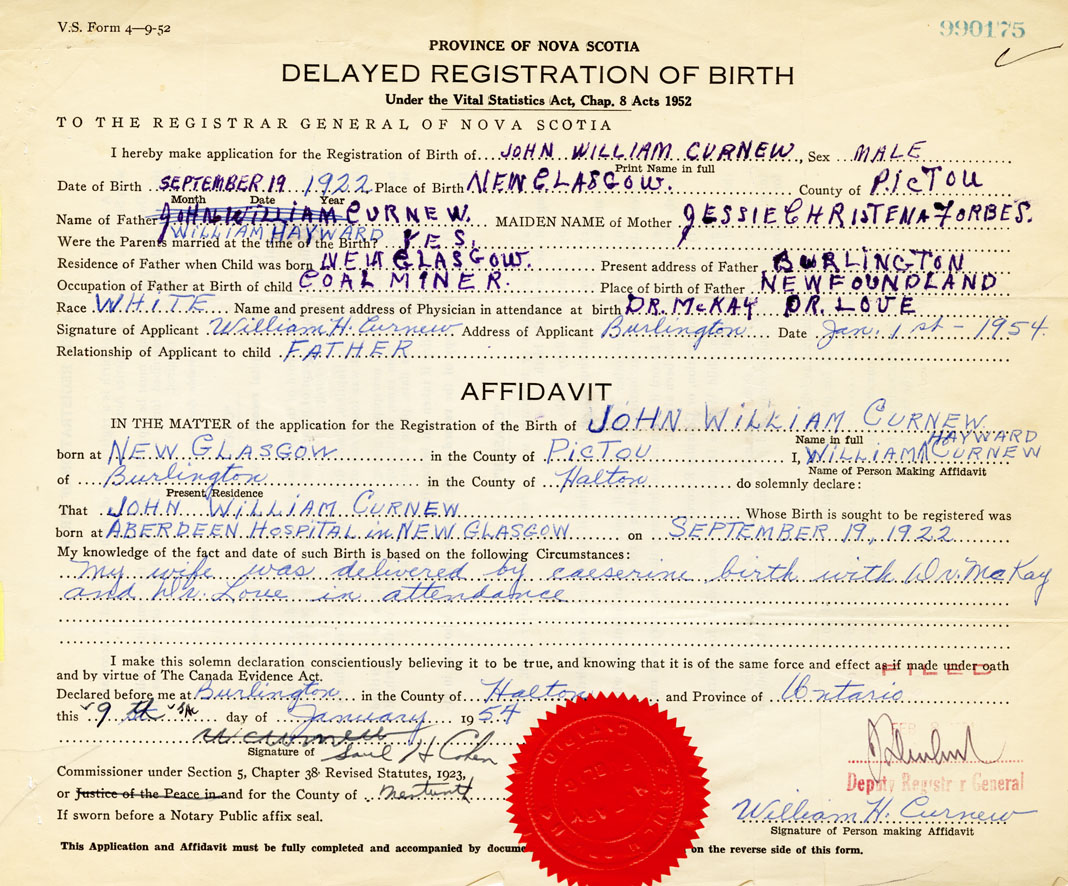 V.S. Form 4—9-52
990175
PROVINCE OF NOVA SCOTIA
DELAYED REGISTRATION OF BIRTH
Under the Vital Statistics Act, Chap. 8 Acts 1952
TO THE REGISTRAR GENERAL OF NOVA SCOTIA
I hereby make application for the Registration of Birth of JOHN WILLIAM CURNEW, Sex MALE
Print Name in full
Date of Birth SEPTEMBER 19 1922 Place of Birth NEW GLASGOW. County of PICTOU
Month Date Year
Name of Father JOHN WILLIAM CURNEW. MAIDEN NAME of Mother JESSIE CHRISTENA FORBES.
WILLIAM HAYWARD
Were the Parents married at the time of the Birth? YES,
Residence of Father when Child was born NEW GLASGOW. Present address of Father BURLINGTON
Occupation of Father at Birth of child COAL MINER. Place of birth of Father NEWFOUNDLAND
Race WHITE Name and present address of Physician in attendance at birth DR. McKAY DR. LOVE
Signature of Applicant William H. Curnew Address of Applicant Burlington Date Jan. 1st - 1954.
Relationship of Applicant to child FATHER
AFFIDAVIT
IN THE MATTER of the application for the Registration of the Birth of JOHN WILLIAM CURNEW
Name in full HAYWARD
born at NEW GLASGOW in the County of PICTOU I, WILLIAM CURNEW
Name of Person Making Affidavit
of Burlington in the County of Halton do solemnly declare:
Present Residence
That JOHN WILLIAM CURNEW Whose Birth is sought to be registered was
born at ABERDEEN HOSPITAL in NEW GLASGOW on SEPTEMBER 19, 1922
My knowledge of the fact and date of such Birth is based on the following Circumstances:
My wife was delivered by caeserine birth with Dr. McKay
and Dr. Love in attendance
I make this solemn declaration conscientiously believing it to be true, and knowing that it is of the same force and effect as if made under oath
and by virtue of The Canada Evidence Act.
FILED
Declared before me at Burlington in the County of Halton and Province of Ontario
this 9th day of January 1954
Signature of Saul H Cohen
Commissioner under Section 5, Chapter 38 Revised Statutes, 1923,
or Justice of the Peace in and for the County of Wentworth
Deputy Registrar General
If sworn before a Notary Public affix seal.
William H. Curnew
Signature of Person making Affidavit
This Application and Affidavit must be fully completed and accompanied by docume on the reverse side of this form.